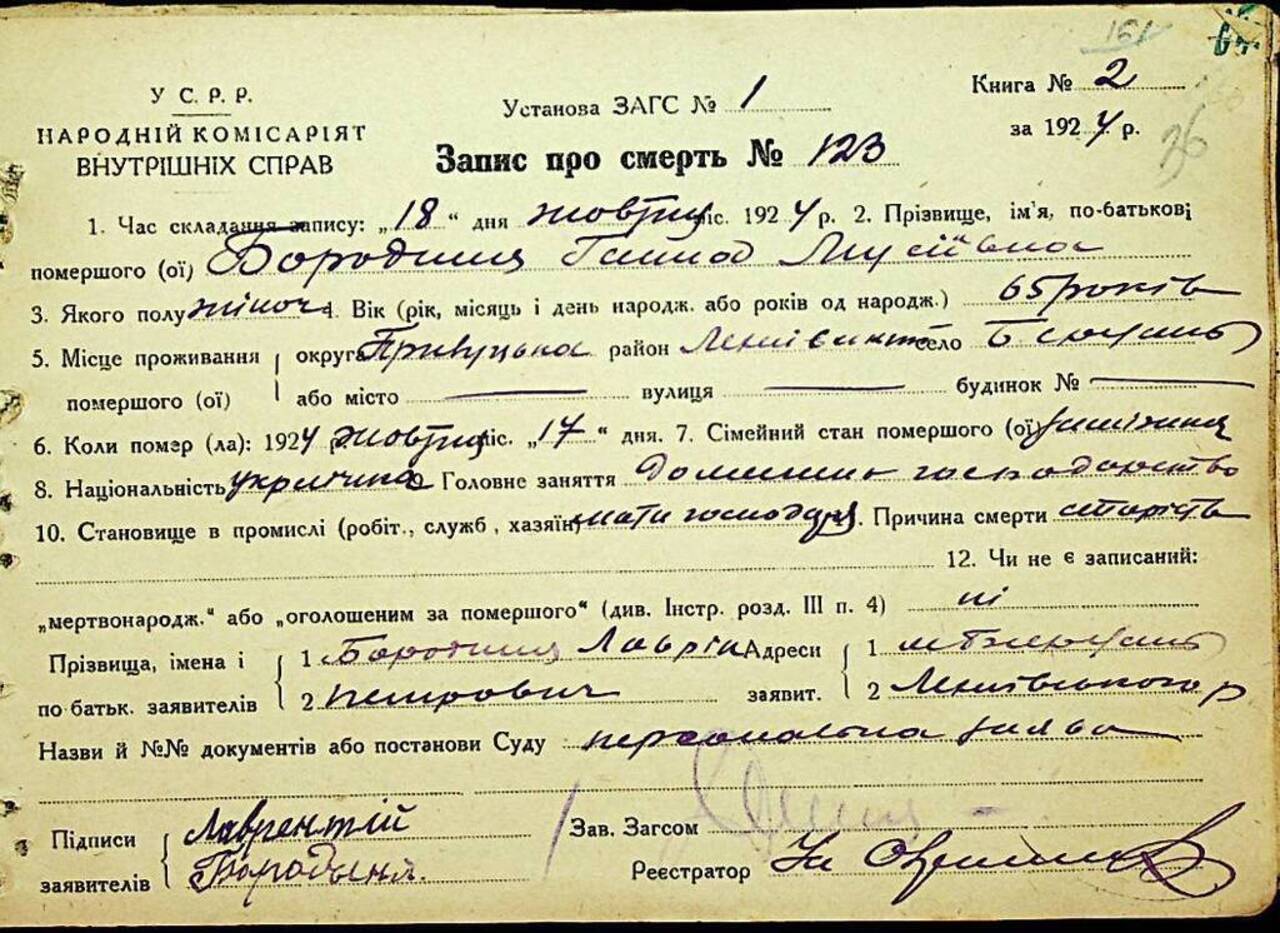 161
У С. Р. Р.
НАРОДНІЙ КОМІСАРІЯТ
ВНУТРІШНІХ СПРАВ
Установа ЗАГС № 1
Книга № 2
за 1924 р.
36
Запис про смерть № 123
1. Час складання запису: „18“ дня жовтня міс. 1924 р. 2. Прізвище, ім'я, по-батькові
помершого (ої) Бородиня Ганна Мусіївна
3. Якого полу жіноч 4. Вік (рік, місяць і день народж. або років од народж.) 65 років
5. Місце проживання округа Прилуцька район село
помершого (ої) або місто вулиця будинок №
6. Коли помер (ла): 1924 р. жовтня міс. „17“ дня. 7. Сімейний стан помершого (ої)
8. Національність українка Головне заняття домашнє господарство
10. Становище в промислі (робіт., служб., хазяїн) мати господаря. Причина смерти старість
12. Чи не є записаний:
„мертвонародж.“ або „оголошеним за помершого“ (див. Інстр. розд. III п. 4) ні
Прізвища, імена і 1 Бородиня Лаврін Адреси 1
по батьк. заявителів 2 Петрович заявит. 2
Назви й №№ документів або постанови Суду персональна заява
Підписи Лаврентій Зав. Загсом
заявителів Бородыня. Реєстратор